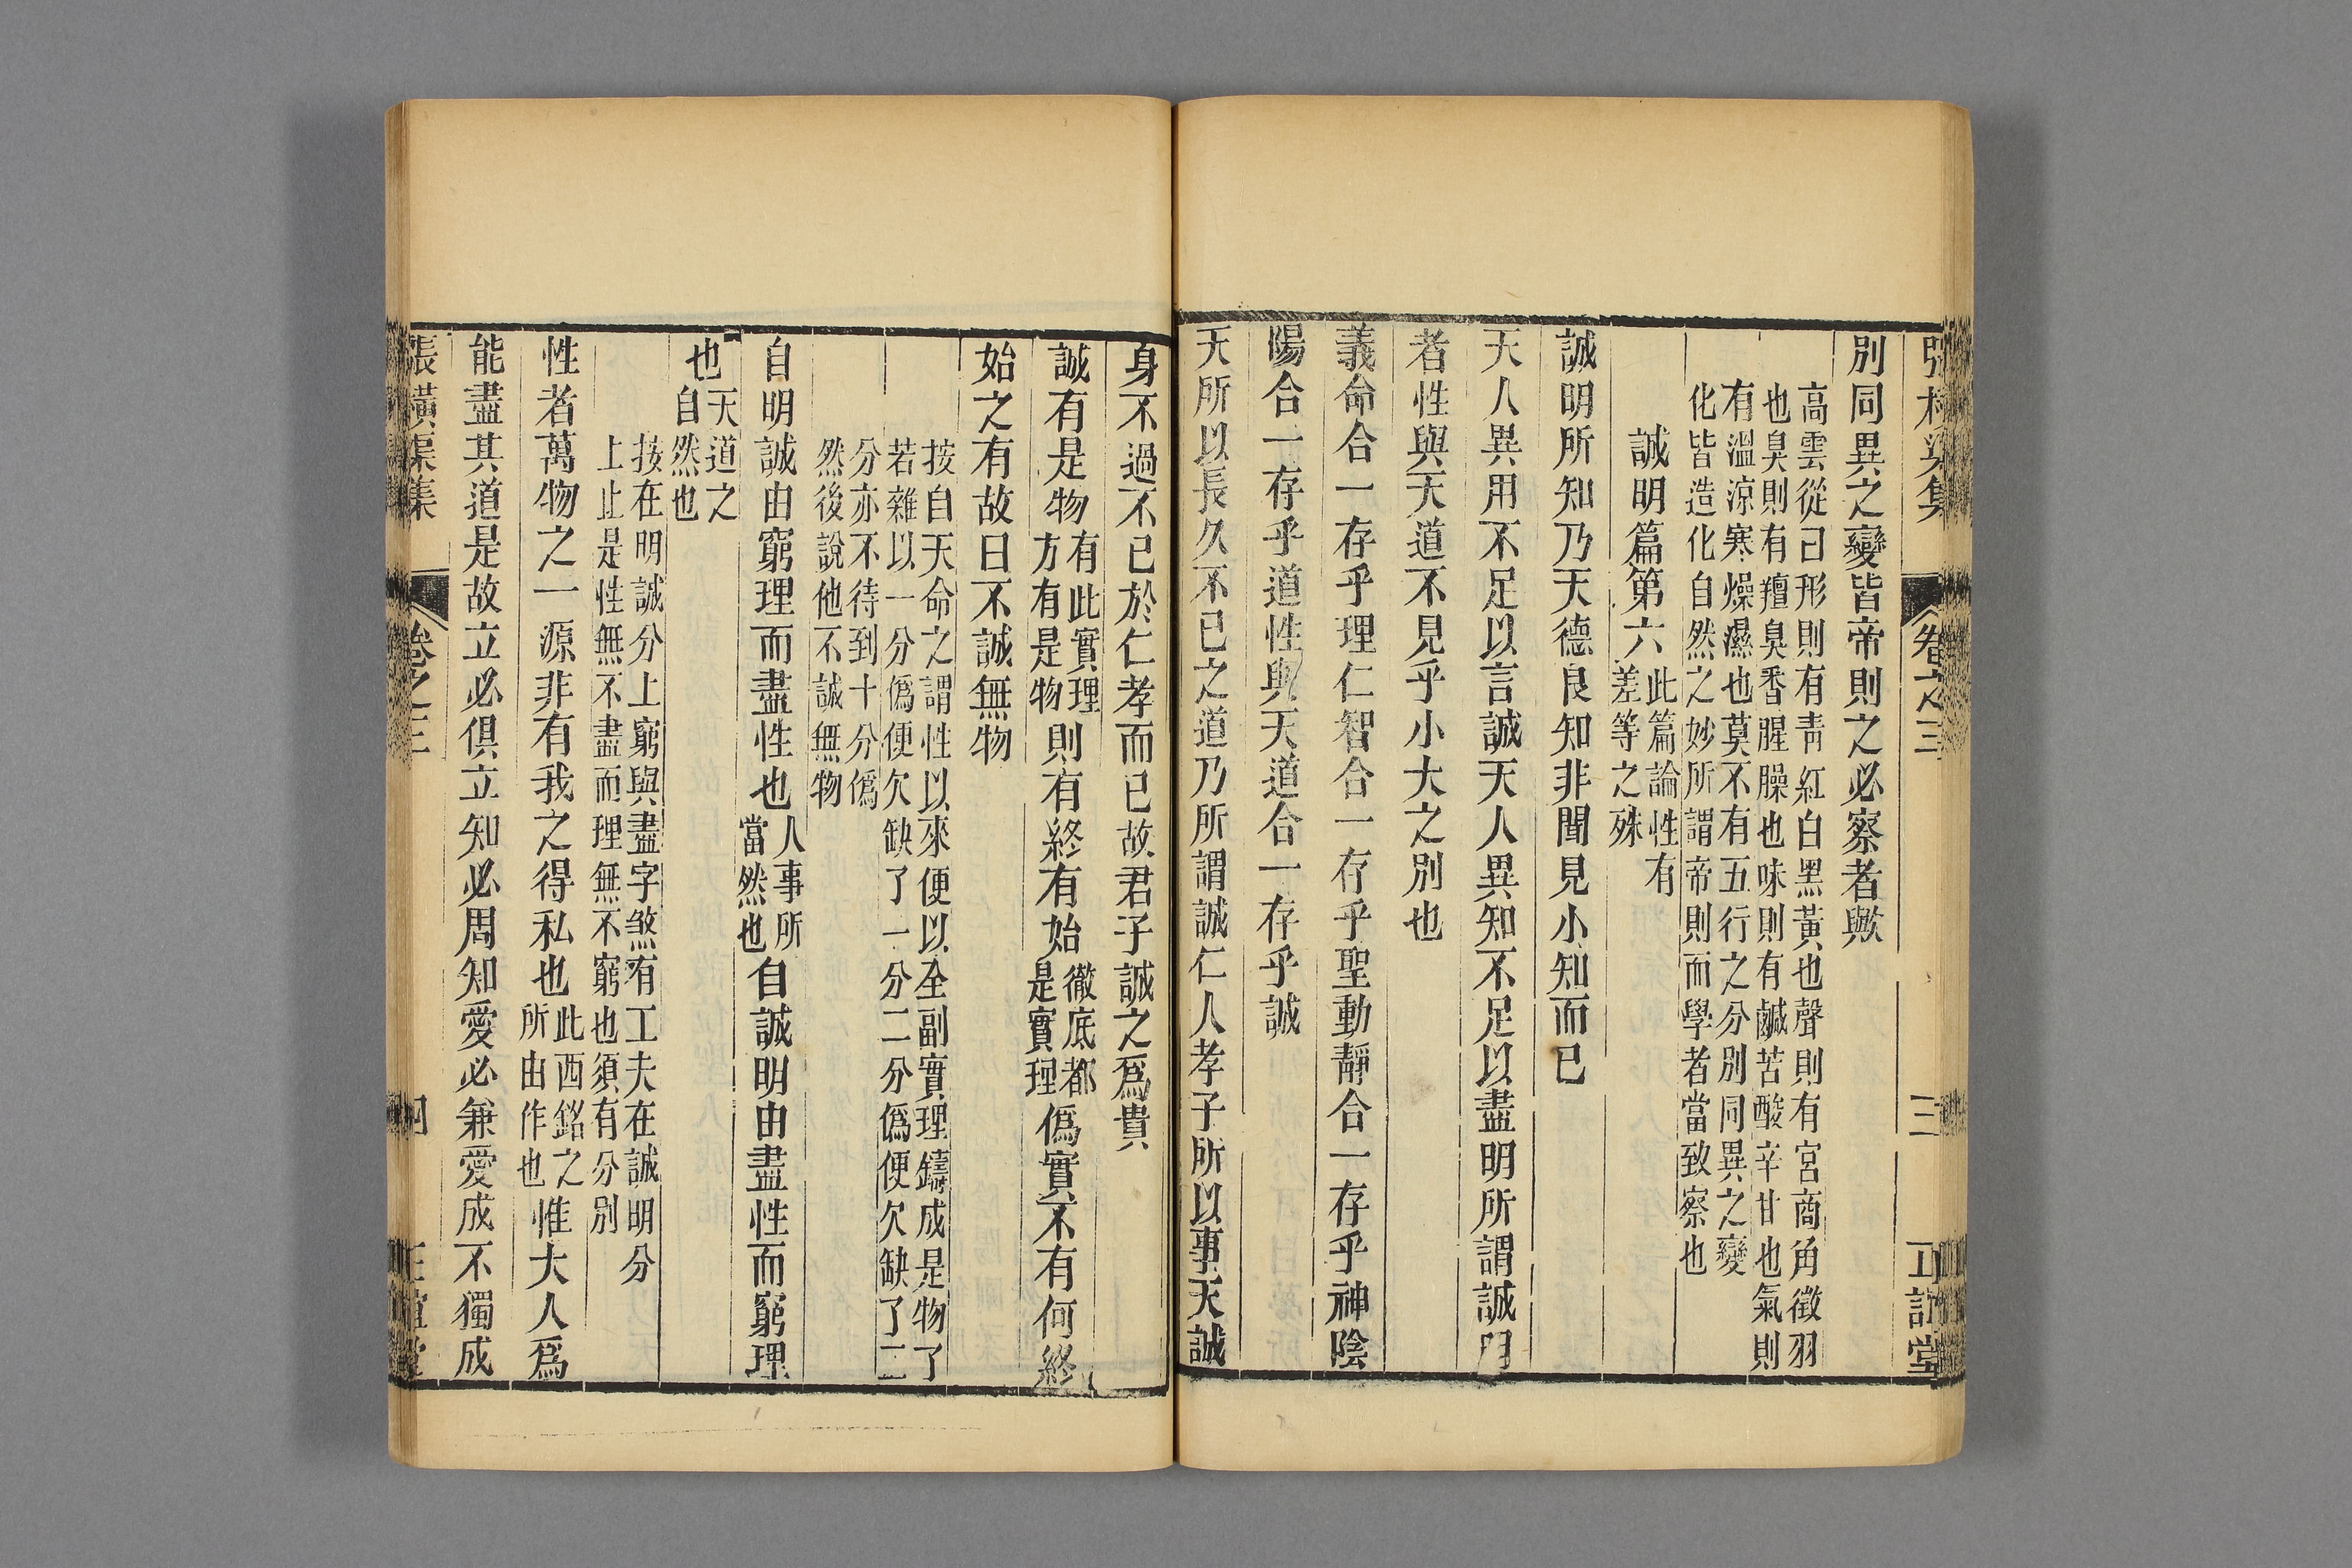 張橫渠集　卷之三　三　正誼堂
別同異之變皆帝則之必察者歟
高雲從曰形則有靑紅白黑黃也聲則有宮商角徵羽
也臭則有羶臭香腥臊也味則有鹹苦酸辛甘也氣則
有溫涼寒燥濕也莫不有五行之分別同異之變
化皆造化自然之妙所謂帝則而學者當致察也
誠明篇第六此篇論性有
差等之殊
誠明所知乃天德良知非聞見小知而已
天人異用不足以言誠天人異知不足以盡明所謂誠明
者性與天道不見乎小大之別也
義命合一存乎理仁智合一存乎聖動靜合一存乎神陰
陽合一存乎道性與天道合一存乎誠
天所以長久不已之道乃所謂誠仁人孝子所以事天誠
身不過不已於仁孝而已故君子誠之爲貴
誠有是物有此實理
方有是物則有終有始徹底都
是實理僞實不有何終
始之有故曰不誠無物
按自天命之謂性以來便以全副實理鑄成是物了
若雜以一分僞便欠缺了一分二分僞便欠缺了二
分亦不待到十分僞
然後說他不誠無物
自明誠由窮理而盡性也人事所
當然也自誠明由盡性而窮理
也天道之
自然也
按在明誠分上窮與盡字煞有工夫在誠明分
上止是性無不盡而理無不窮也須有分別
性者萬物之一源非有我之得私也此西銘之
所由作也惟大人爲
能盡其道是故立必俱立知必周知愛必兼愛成不獨成
張橫渠集　卷之三　四　正誼堂